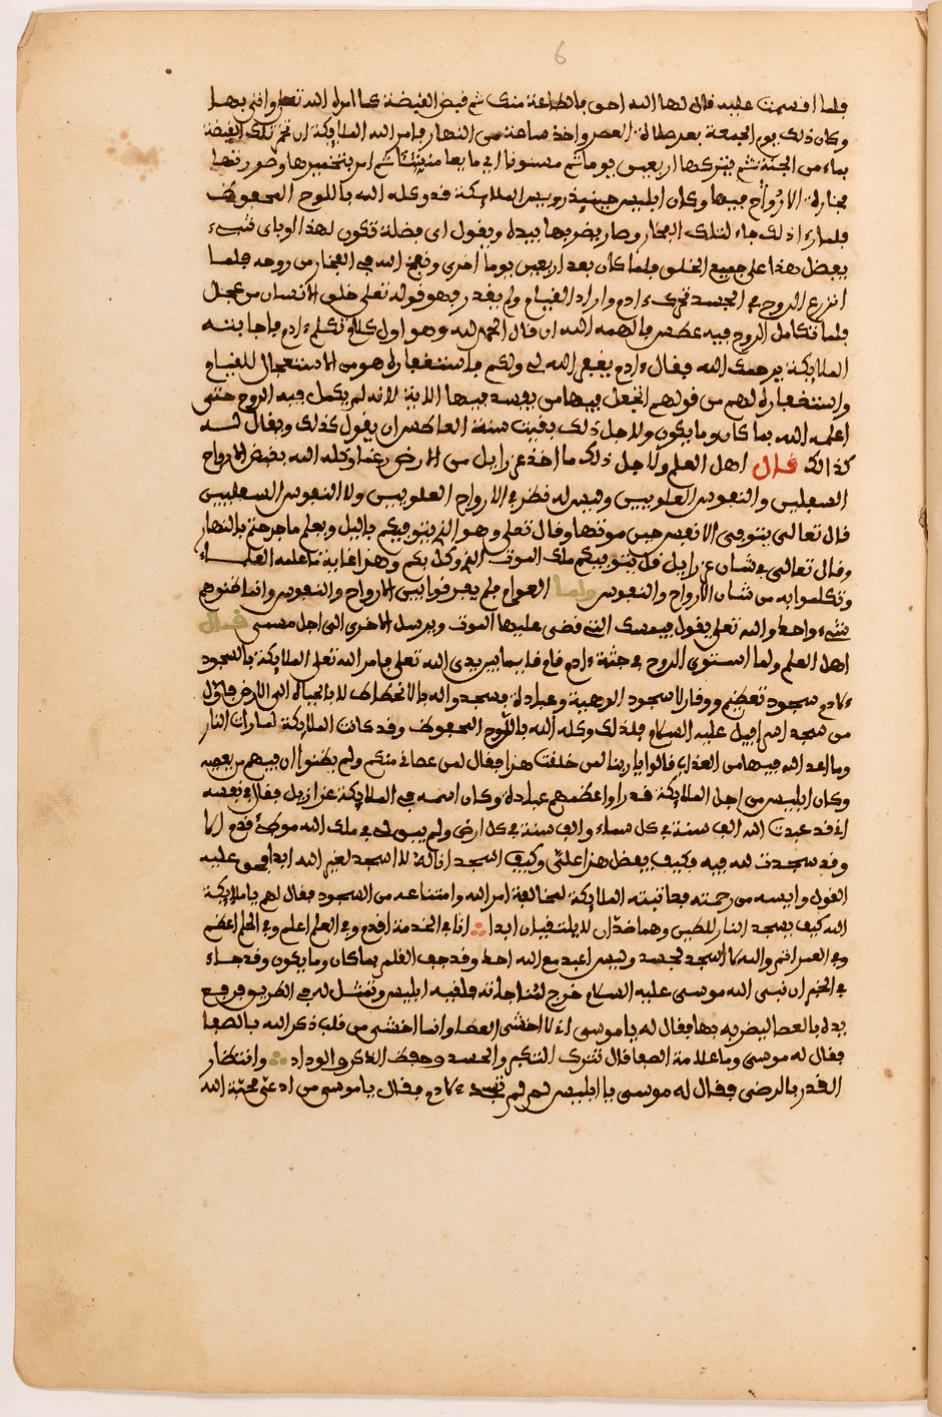 6
فلما اقسمت عليه قال لها الله احق بالطاعة منك ثم قبض القبضة كما امره الله تعلى واتى بها
وكان ذلك يوم الجمعة بعد صلاة العصر واخذ ساعة من النهار فامر الله الملايكة ان تخمر تلك القبضة
بماء من الجنة ثم يتركها اربعين يوما ثم مسنونا اي ما يعا منتنا ثم امر بتخميرها وصورتها
مجاري الارواح فيها وكان ابليس حينيذ رييس الملايكة قد وكله الله باللوح المحفوظ
فلما رءا ذلك جاء لتلك الفخار وصار يضربها بيده ويقول اي فضلة تكون لهذا او باي شيء
يفضل هذا على جميع الخلق فلما كان بعد اربعين يوما اخرى ونفخ الله في الفخار من روحه فلما
انزع الروح في الجسد تحرك ءادم واراد القيام ولم يقدر فهو قوله تعلى خلق الانسان من عجل
فلما تكامل الروح فيه عطس فالهمه الله ان قال الحمد لله وهو اول كلام تكلم ءادم فاجابته
الملايكة يرحمك الله فقال ءادم يغفر الله لي ولكم فاستغفاره هو من الاستعجال للقيام
واستغفاره لهم من قولهم اتجعل فيها من يفسد فيها الاية لانه لم يكمل فيه الروح حتى
اعلمه الله بما كان وما يكون ولاجل ذلك بقيت سنة العاطس ان يقول كذلك ويقال له
كذالك قال اهل العلم ولاجل ذلك ما اخذ عزرايل من الارض رغما وكله الله بقبض الارواح
السفليين والنفوس العلويين وليس له نظر في الارواح العلويين ولا النفوس السفليين
قال تعالى يتوفى الانفس حين موتها وقال تعلى وهو الذي يتوفيكم باليل ويعلم ما جرحتم بالنهار
وقال تعالى في شان عزرايل قل يتوفيكم ملك الموت الذي وكل بكم وهذا غاية ما علمه العلماء
وتكلموا به من شان الارواح والنفوس واما العوام فلم يفرقوا بين الارواح والنفوس وانما ظنوهم
شيء واحد والله تعلى يقول فيمسك التي قضى عليها الموت ويرسل الاخرى الى اجل مسمى قال
اهل العلم ولما استوى الروح في جثة ءادم قام قايما بين يدي الله تعلى فامر الله تعلى الملايكة بالسجود
ءلادم سجود تعظيم ووقار لا سجود الوهية وعبادة فسجدوا له بالانحطاط لا بالجباه الى الارض فاول
من سجد اسرافيل عليه السلام فلذلك وكله الله باللوح المحفوظ وقد كانت الملايكة لما رات النار
وما اعد الله فيها من العذاب قالوا يا ربنا لمن خلقت هذا فقال لمن عصاني منكم ولم يظنوا ان فيهم من يعصه
وكان ابليس من اجل الملايكة قدرا واعظمهم عبادة وكان اسمه في الملايكة عزازيل فقال في نفسه
اني قد عبدت الله الف سنة في كل سماء والف سنة في كل ارض ولم يبق لي في ملك الله موضع قدم الا
وقد سجدت لله فيه فكيف يفضل هذا علي وكيف اسجد انا له لا اسجد لغير الله ابدا فحق عليه
القول وايسه من رحمته فعاتبته الملايكة لمخالفة امر الله وامتناعه من السجود فقال لهم يا ملايكة
الله كيف يسجد النار للطين وهما ضدان لا يلتقيان ابدا انا في الخدمة اقدم وفي العلم اعلم وفي الحلم اعظم
وفي العمر اتم والله لا اسجد لجسد وليس اعبد مع الله احد وقد جف القلم بما كان وما يكون وقد جاء
في الخبر ان نبي الله موسى عليه السلام خرج لمناجاته فلقيه ابليس وتمثل له في الطريق فرفع
يده بالعصا ليضربه بها فقال له يا موسى اني لا اخشى العصا وانما اخشى من قلب ذكر الله بالصفا
فقال له موسى وما علامة الصفا قال تترك التكبر والحسد وحفظ الذكر والوداد وانتظار
القدر بالرضى فقال له موسى يا ابليس لم لم تسجد ءلادم فقال يا موسى من ادعى محبة الله